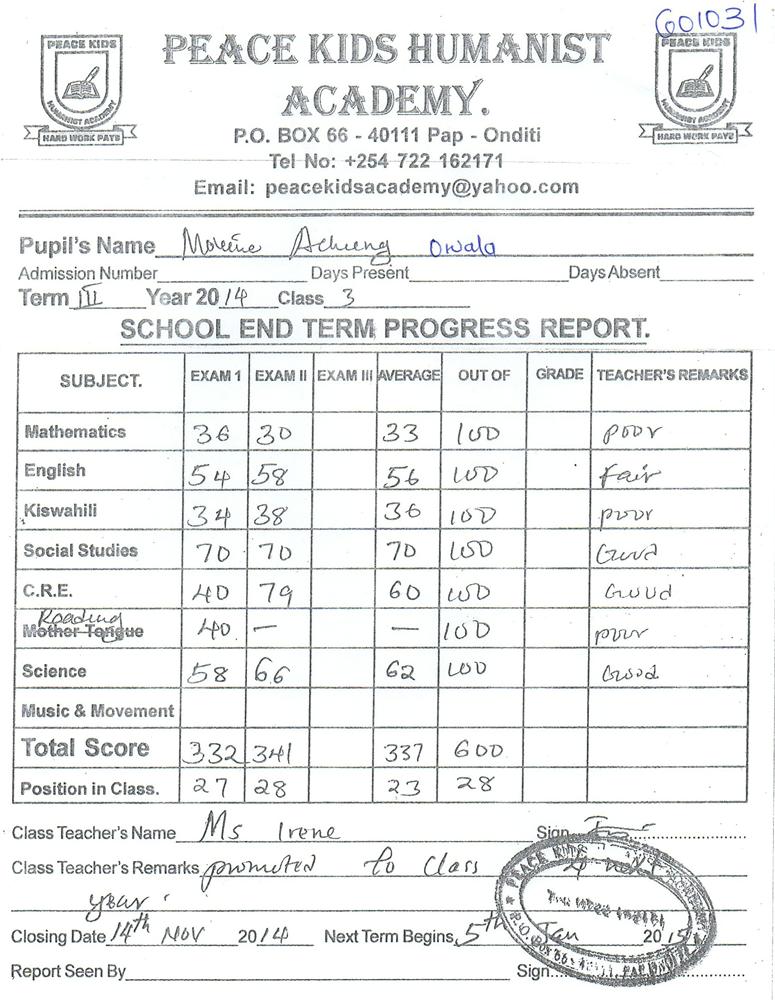 G01031
PEACE KIDS
HUMANIST ACADEMY
HARD WORK PAYS
PEACE KIDS HUMANIST
ACADEMY.
PEACE KIDS
HUMANIST ACADEMY
HARD WORK PAYS
P.O. BOX 66 - 40111 Pap - Onditi
Tel No: +254 722 162171
Email: peacekidsacademy@yahoo.com
Pupil's Name Achieng Owala
Admission Number Days Present Days Absent
Term III Year 2014 Class 3
SCHOOL END TERM PROGRESS REPORT.
SUBJECT. EXAM 1 EXAM II EXAM III AVERAGE OUT OF GRADE TEACHER'S REMARKS
Mathematics 36 30 33 100 poor
English 54 58 56 100 fair
Kiswahili 34 38 36 100 poor
Social Studies 70 70 70 100 Good
C.R.E. 40 79 60 100 Good
Reading
Mother Tongue 40 — — 100 poor
Science 58 66 62 100 Good
Music & Movement
Total Score 332 341 337 600
Position in Class. 27 28 23 28
Class Teacher's Name Ms Irene Sign
Class Teacher's Remarks promoted to Class 4 next
year.
Closing Date 14th NOV 2014 Next Term Begins 5th Jan 2015
Report Seen By Sign